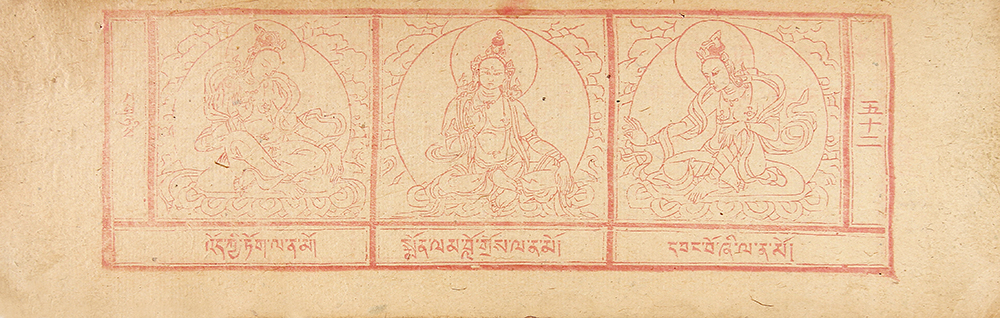 འོད་ཀྱི་ཏོག་ལ་ན་མོ།
སྨོན་ལམ་བློ་གྲོས་ལ་ན་མོ།
དབང་པོ་ཞི་ལ་ན་མོ།
五十二